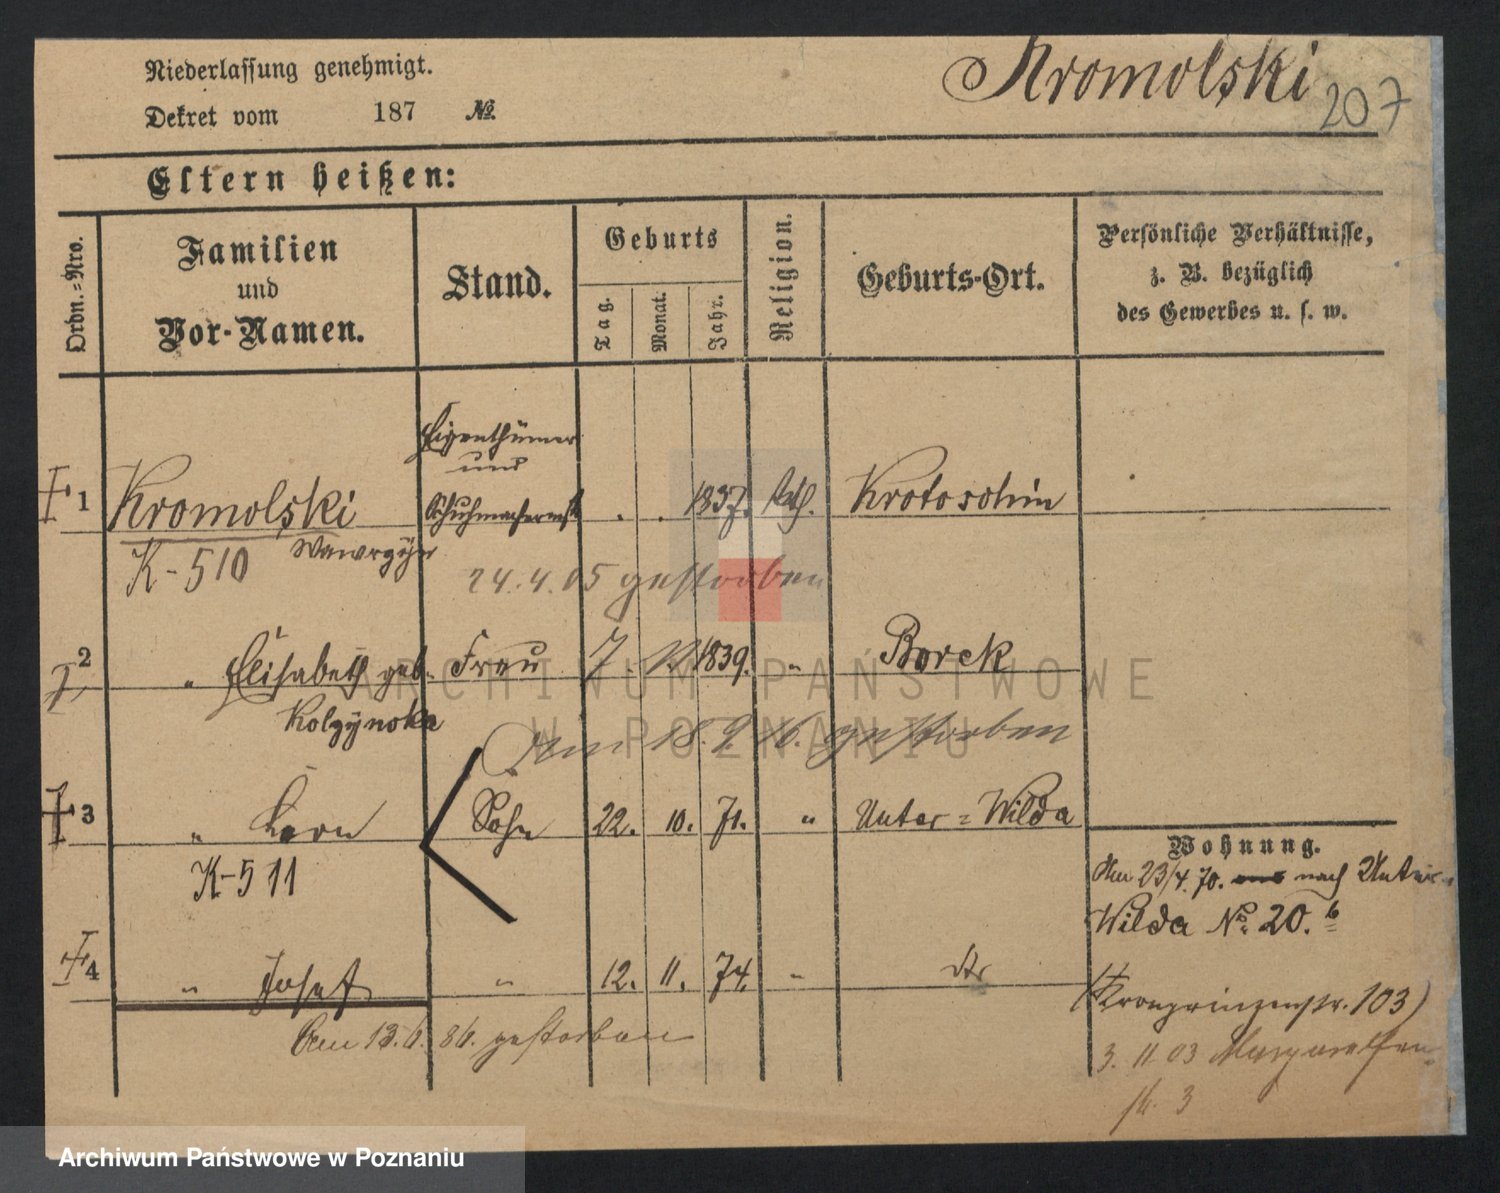 Niederlassung genehmigt.
Kromolski
207
Dekret vom 187 №
Eltern heißen:
Ordn.=Nro.
Familien
und
Vor-Namen.
Stand.
Geburts
Tag.
Monat.
Jahr.
Religion.
Geburts-Ort.
Persönliche Verhältnisse,
z. B. bezüglich
des Gewerbes u. s. w.
Eigenthümer
und
1 Kromolski Schuhmachermst. . . 1837. kath. Krotoschin
Wawrzyn
K-510
24.4.05 gestorben
2 " Elisabeth geb. Frau 7 1839. " Borek
Kolzynska
Am 18.9. 16. gestorben
3 " Sohn 22. 10. 71. " Unter=Wilda
K-511
Wohnung.
Am 23/4. 70. nach Unter-
Wilda № 20. b
4 " Josef " 12. 11. 74. " dto
(Kronprinzenstr. 103)
Am 13.6. 86. gestorben
3. 11 03 Margarethen-
str. 3
ARCHIWUM PAŃSTWOWE
W POZNANIU
Archiwum Państwowe w Poznaniu